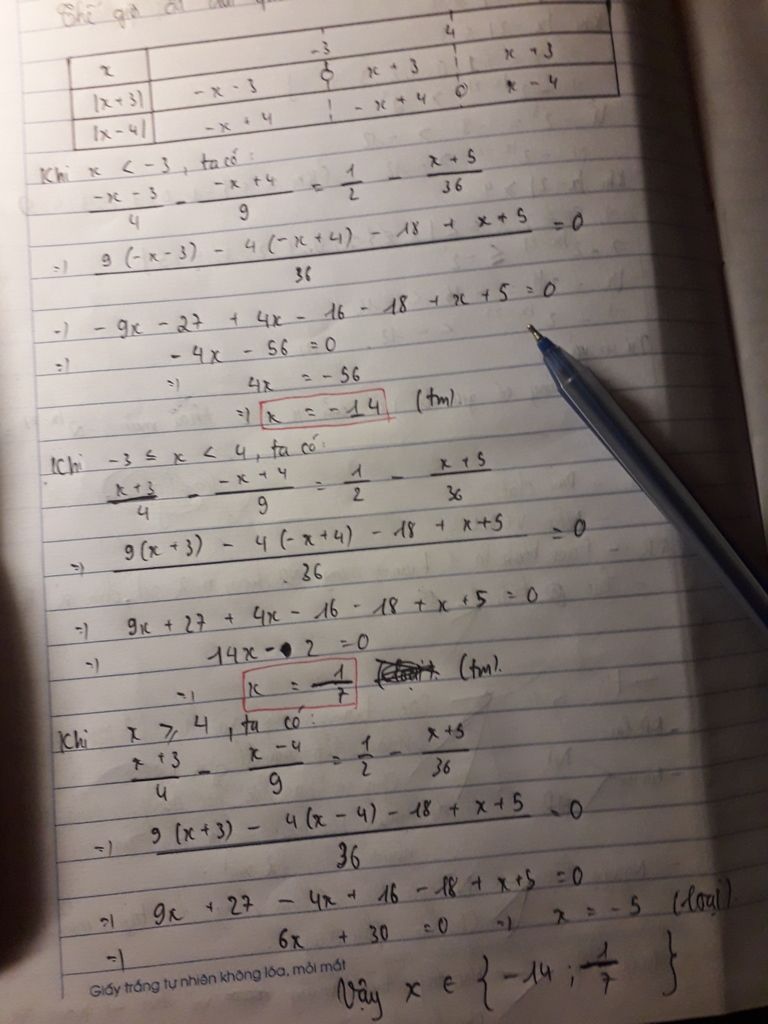 -3 4
x
|x+3| -x-3 0 x+3 x+3
|x-4| -x+4 -x+4 0 x-4
Khi x < -3, ta có:
\frac{-x-3}{4} - \frac{-x+4}{9} = \frac{1}{2} - \frac{x+5}{36}
=) \frac{9(-x-3) - 4(-x+4) - 18 + x+5}{36} = 0
=) -9x - 27 + 4x - 16 - 18 + x + 5 = 0
=) -4x - 56 = 0
=) 4x = -56
=) x = -14 (tm)
Khi -3 ≤ x < 4, ta có:
\frac{x+3}{4} - \frac{-x+4}{9} = \frac{1}{2} - \frac{x+5}{36}
=) \frac{9(x+3) - 4(-x+4) - 18 + x+5}{36} = 0
=) 9x + 27 + 4x - 16 - 18 + x + 5 = 0
=) 14x - 2 = 0
=) x = \frac{1}{7} (tm).
Khi x ≥ 4, ta có:
\frac{x+3}{4} - \frac{x-4}{9} = \frac{1}{2} - \frac{x+5}{36}
=) \frac{9(x+3) - 4(x-4) - 18 + x+5}{36} = 0
=) 9x + 27 - 4x + 16 - 18 + x+5 = 0
=) 6x + 30 = 0 =) x = -5 (loại)
Giấy trắng tự nhiên không lóa, mỏi mắt
Vậy x ∈ {-14; \frac{1}{7}}